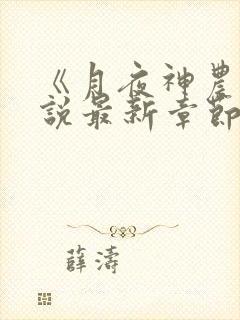 《月夜神農
說最新章節
薛濤